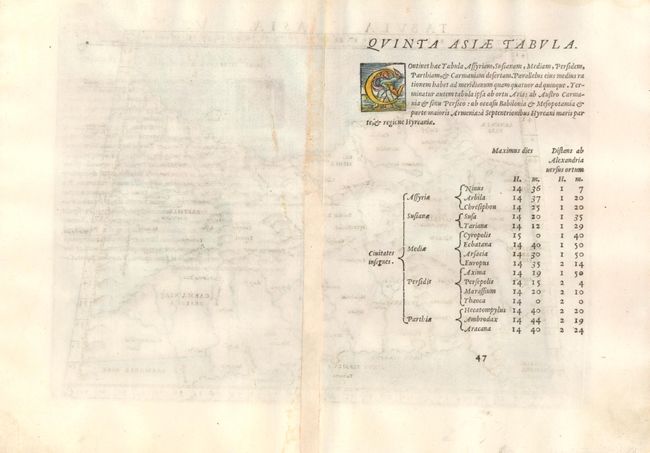 QVINTA ASIÆ TABVLA.
COntinet hæc Tabula Assyriam, Susianam, Mediam, Persidem,
Parthiam, & Carmaniam desertam. Parallelus eius medius ra
tionem habet ad meridianum quam quatuor ad quinque. Ter-
minatur autem tabula ipsa ab ortu Aria: ab Austro Carma-
nia & sinu Persico: ab occasu Babilonia & Mesopotamia &
parte maioris Armeniæ: à Septentrionibus Hyrcani maris par
te, & regione Hyrcaniæ.
Maximus dies Distans ab
Alexandria
uersus ortum
H. m. H. m.
Ciuitates insignes.
Assyriæ
Ninus 14 36 1 7
Arbila 14 37 1 20
Chtesiphon 14 25 1 20
Susianæ
Susa 14 20 1 35
Tariana 14 12 1 29
Mediæ
Cyropolis 15 0 1 40
Ecbatana 14 40 1 50
Arsacia 14 30 1 50
Europus 14 35 2 14
Persidis
Axima 14 19 1 50
Persepolis 14 15 2 4
Marassium 14 20 2 10
Thaoca 14 0 2 0
Parthiæ
Hecatompylus 14 40 2 20
Ambrodax 14 44 2 19
Aracana 14 40 2 24
47